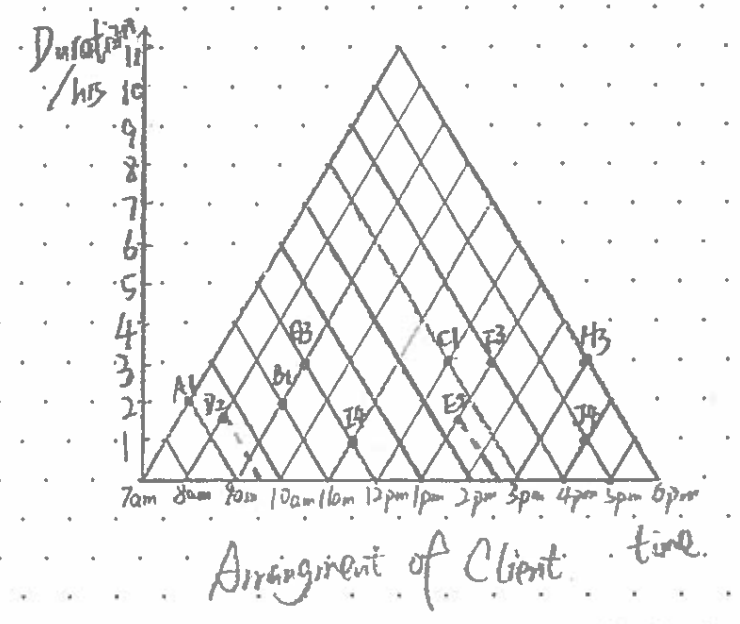 Duration
/hrs
11
10
9
8
7
6
5
4
3
2
1
G3
C1
F3
H3
A1
B1
E5
I4
J4
7am 8am 9am 10am 11am 12pm 1pm 2pm 3pm 4pm 5pm 6pm
time.
Arrangment of Client